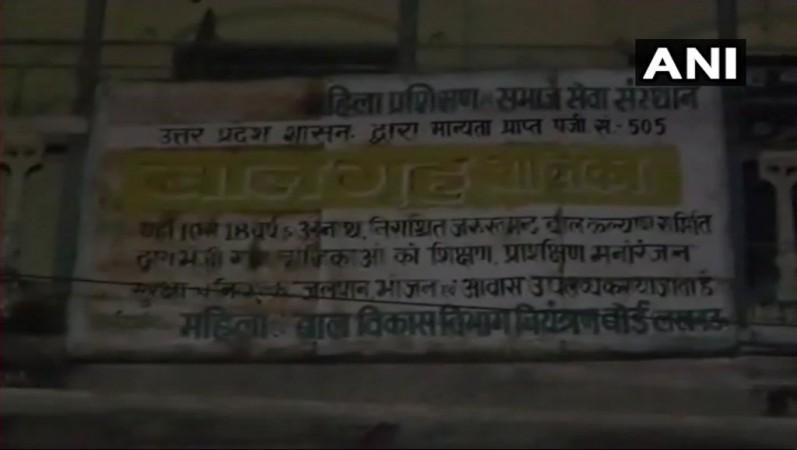 ANI
हिला प्रशिक्षण समाज सेवा संस्थान
उत्तर प्रदेश शासन द्वारा मान्यता प्राप्त पंजी सं.-505
बालगृह बालिका
10 से 18 वर्ष अनाथ, निराश्रित जरूरतमन्द बाल कल्याण समिति
द्वारा बालिकाओं को शिक्षण, प्रशिक्षण मनोरंजन
सुरक्षा जलपान भोजन एवं आवास उपलब्ध कराया जाता है
महिला बाल विकास विभाग नियंत्रण बोर्ड लखनऊ